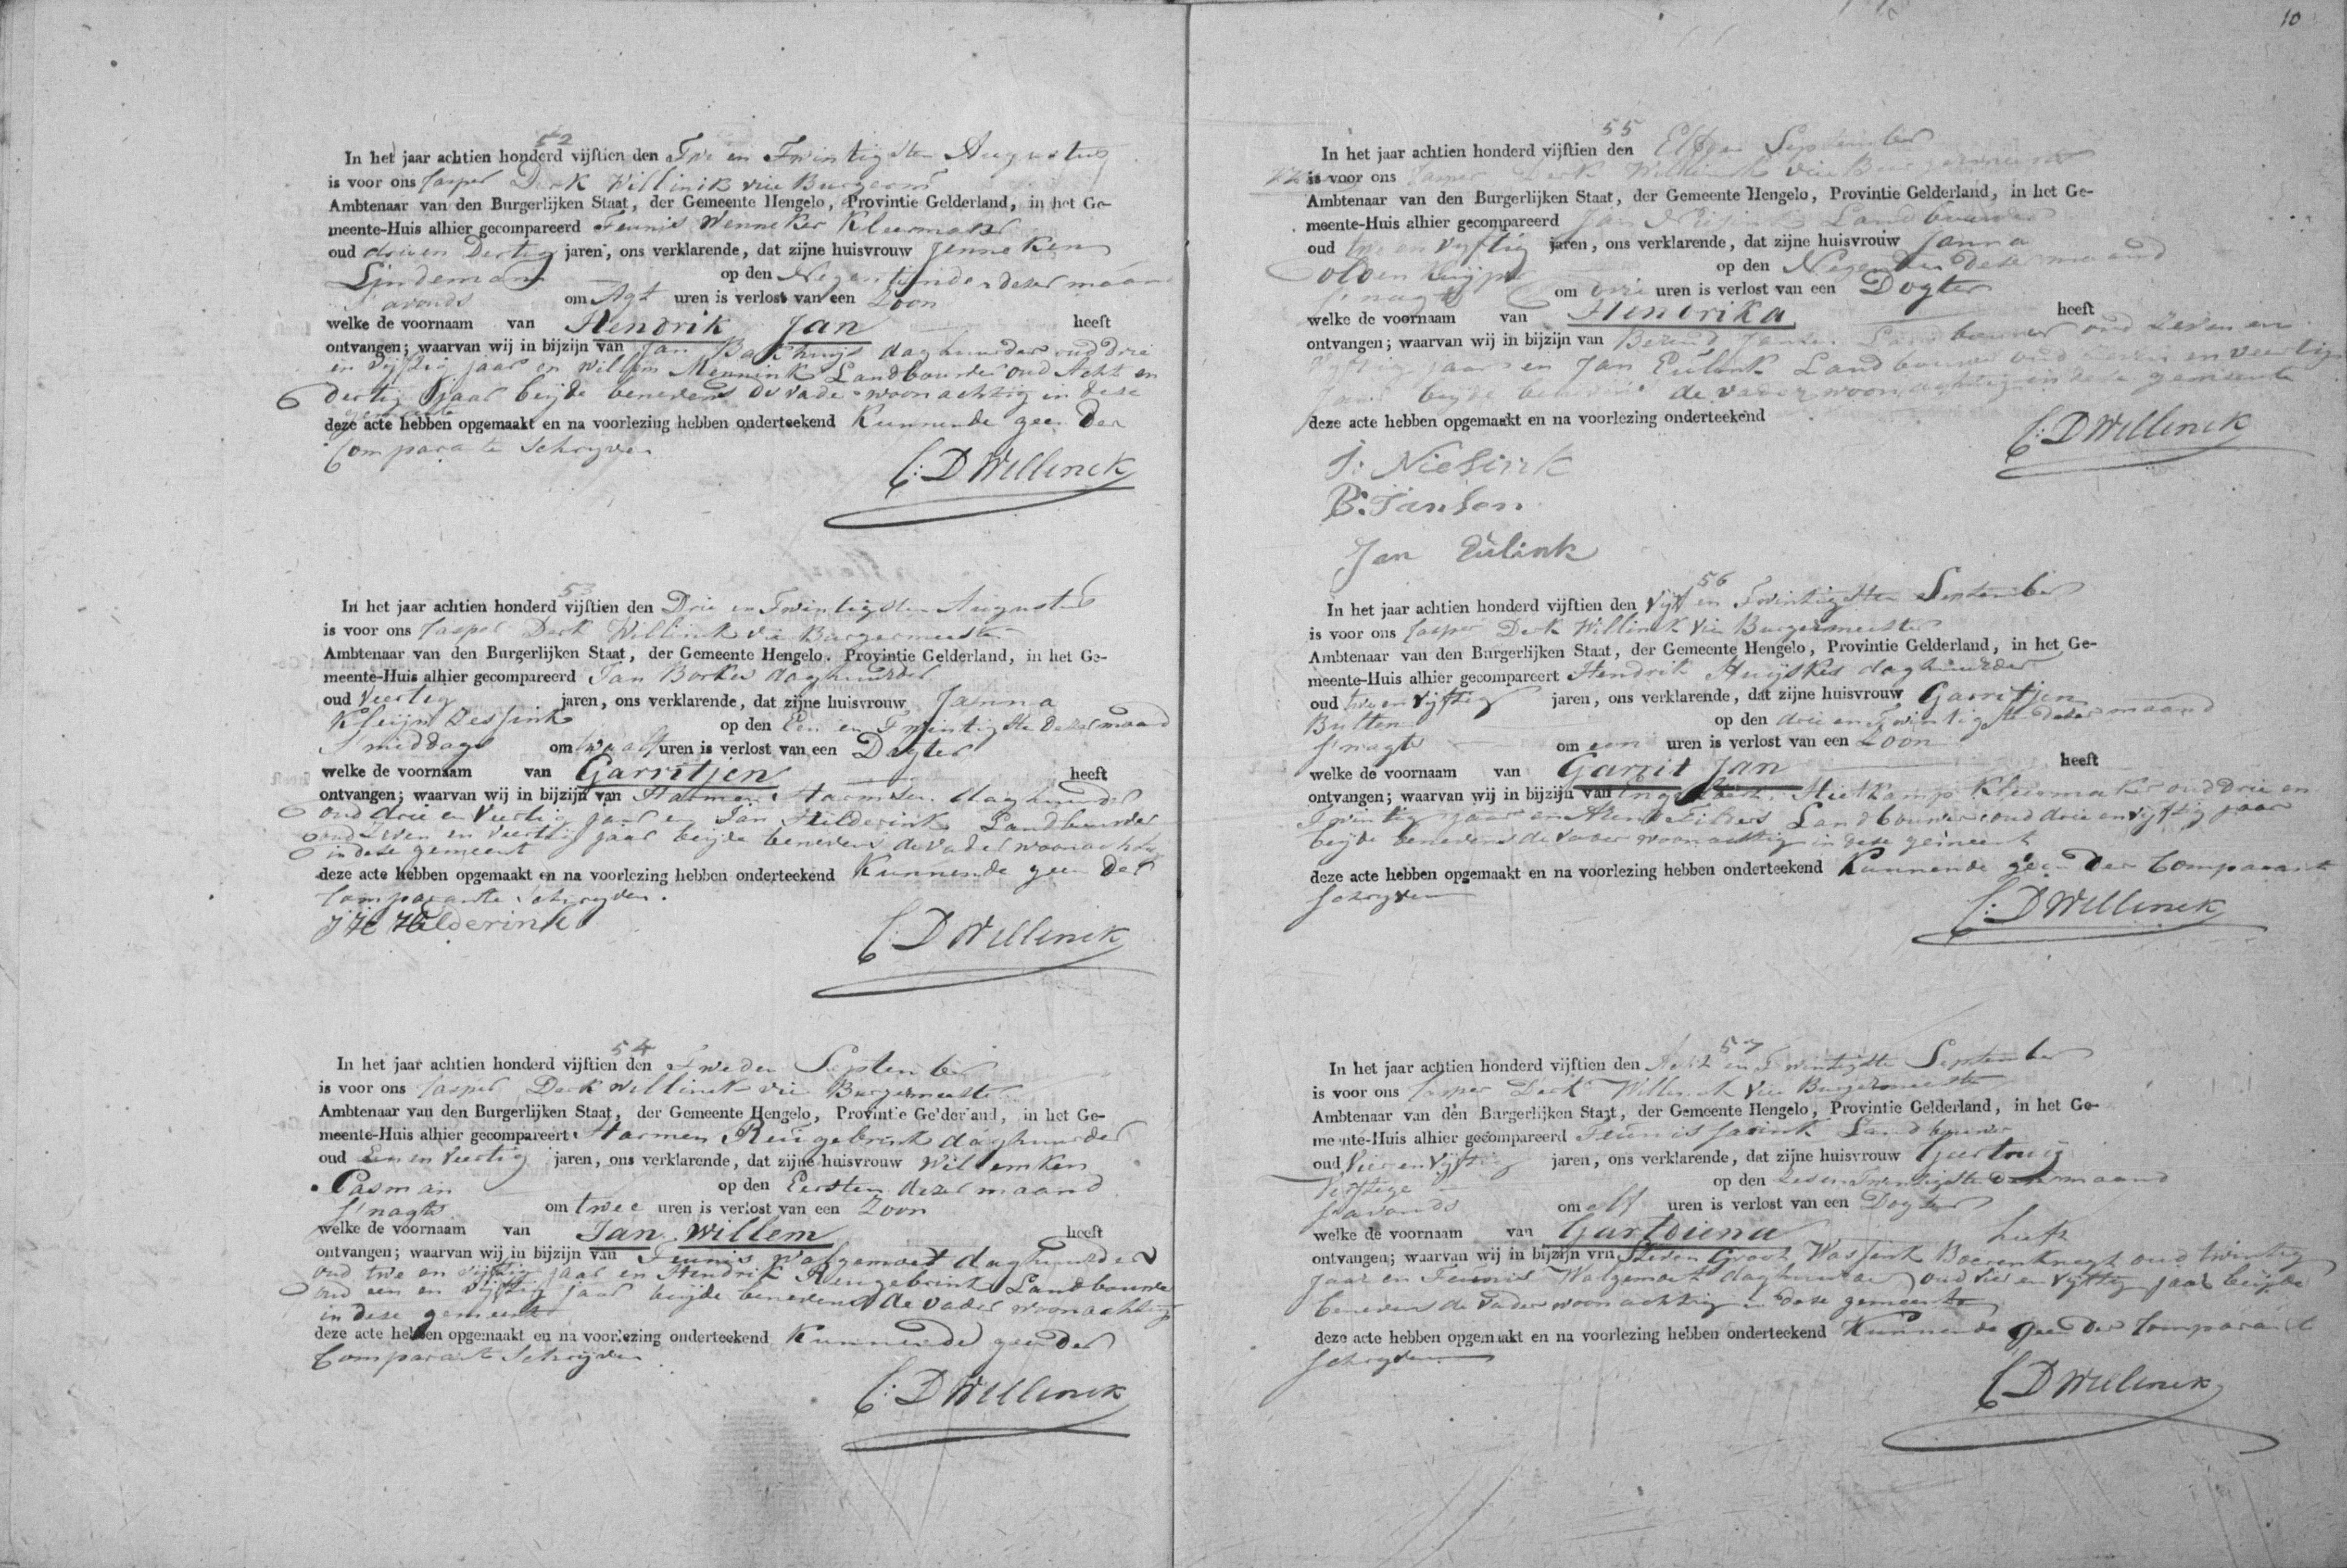 52
In het jaar achtien honderd vijftien den Twe en Twintigsten Augustus
is voor ons Casper Derk Willinik vice Burgerm
Ambtenaar van den Burgerlijken Staat, der Gemeente Hengelo, Provintie Gelderland, in het Ge-
meente-Huis alhier gecompareerd Teunis Wenneker Kleermaker
oud drie en Dertig jaren, ons verklarende, dat zijne huisvrouw Jenneken
Lindeman op den Negentienden deser maand
s'avonds om Agt uren is verlost van een Zoon
welke de voornaam van Hendrik Jan heeft
ontvangen; waarvan wij in bijzijn van Jan Bakhuijs daghuurder oud drie
en vijftig jaar en Willem Mennink Landbouwer oud Acht en
dertig Jaar beijde benevens de vader woonachtig in dese
gemeente
deze acte hebben opgemaakt en na voorlezing hebben onderteekend Kunnende geen der
Comparante Schryven
C: D Willinck
53
In het jaar achtien honderd vijftien den Drie en Twintigsten Augustus
is voor ons Casper Derk Willink vice Burgermeester
Ambtenaar van den Burgerlijken Staat, der Gemeente Hengelo. Provintie Gelderland, in het Ge-
meente-Huis alhier gecompareerd Jan Borkes daghuurder
oud Veertig jaren, ons verklarende, dat zijne huisvrouw Janna
Kleijn Dessink op den Een en Twintigste deser maand
S'middags om twaalf uren is verlost van een Dogter
welke de voornaam van Garritjen heeft
ontvangen; waarvan wij in bijzijn van Harmen Harmsen daghuurder
oud drie en Veertig Jaar en Jan Hilderink Landbouwer
oud Zeven en Veertig jaar beijde benevens de vader woonachtig
in dese gemeent
deze acte hebben opgemaakt en na voorlezing hebben onderteekend Kunnende geen der
Comparante schryven.
J H Hilderink
C: D Willinck
54
In het jaar achtien honderd vijftien den Tweden September
is voor ons Casper Derk Willinck vice Burgermeester
Ambtenaar van den Burgerlijken Staat, der Gemeente Hengelo, Provintie Gelderland, in het Ge-
meente-Huis alhier gecompareert Harmen Reugebrink daghuurder
oud Een en Veertig jaren, ons verklarende, dat zijne huisvrouw Willemken
Pasman op den Eersten dezer maand
s'nagts om twee uren is verlost van een Zoon
welke de voornaam van Jan Willem heeft
ontvangen; waarvan wij in bijzijn van Teunis Walgemoet daghuurder
oud twe en vijftig jaar en Hendrik Reugebrink Landbouwer
oud een en vijftig jaar beijde benevens de vader woonachtig
in dese gemeente
deze acte hebben opgemaakt en na voorlezing onderteekend Kunnende geen der
Comparante Schryven
C: D Willinck
10
55
In het jaar achtien honderd vijftien den Elfden September
is voor ons Casper Derk Willinck vice Burgermeester
Ambtenaar van den Burgerlijken Staat, der Gemeente Hengelo, Provintie Gelderland, in het Ge-
meente-Huis alhier gecompareerd Jan Landbouwer
oud twe en vyftig jaren, ons verklarende, dat zijne huisvrouw Janna
op den Negenden deser maand
s'nagts om drie uren is verlost van een Dogter
welke de voornaam van Hendrika heeft
ontvangen; waarvan wij in bijzijn van Berend Jansen Landbouwer oud Zeven en
Vyftig jaar en Jan Eulink Landbouwer oud en veertig
Jaar beyde benevens de vader woonachtig in dese gemeente
deze acte hebben opgemaakt en na voorlezing onderteekend
C: D Willinck
J: Niesink
B: Jansen
Jan Eulink
56
In het jaar achtien honderd vijftien den Vyf en Twintigsten September
is voor ons Casper Derk Willinck Vice Burgermeester
Ambtenaar van den Burgerlijken Staat, der Gemeente Hengelo, Provintie Gelderland, in het Ge-
meente-Huis alhier gecompareert Hendrik Huijskes daghuurder
oud twe en Vyftig jaren, ons verklarende, dat zijne huisvrouw Garritjen
Bulten op den drie en Twintigste deser maand
s'nagts om een uren is verlost van een Zoon
welke de voornaam van Garrit Jan heeft
ontvangen; waarvan wij in bijzijn van Hietkamp Kleermaker oud Drie en
Twintig jaar en Arend Landbouwer oud drie en vyftig jaar
beyde benevens de vader woonachtig in dese gemeent
deze acte hebben opgemaakt en na voorlezing hebben onderteekend Kunnende geen der Comparant
schryven
C: D Willinck
57
In het jaar achtien honderd vijftien den Acht en Twintigste September
is voor ons Casper Derk Willinck Vice Burgermeester
Ambtenaar van den Burgerlijken Staat, der Gemeente Hengelo, Provintie Gelderland, in het Ge-
meente-Huis alhier gecompareerd Teunis Landbouwer
oud Vier en Vyftig jaren, ons verklarende, dat zijne huisvrouw Geertruij
op den Zes en Twintigste deser maand
s'avonds om elf uren is verlost van een Dogter
welke de voornaam van Gartdiena heeft
ontvangen; waarvan wij in bijzijn vrn Steven Groot Wassink Boerenknegt oud twintig
Jaar en Teunis Walgemoet daghuurder oud vier en vyftig jaar beijde
benevens de vader woonachtig in dese gemeente
deze acte hebben opgemaakt en na voorlezing hebben onderteekend Kunnende geen der Comparant
schryven
C D Willinck